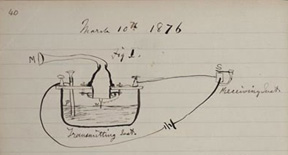 40
March 10th 1876
Fig 1.
M
S
Receiving Inst.
Transmitting Inst.